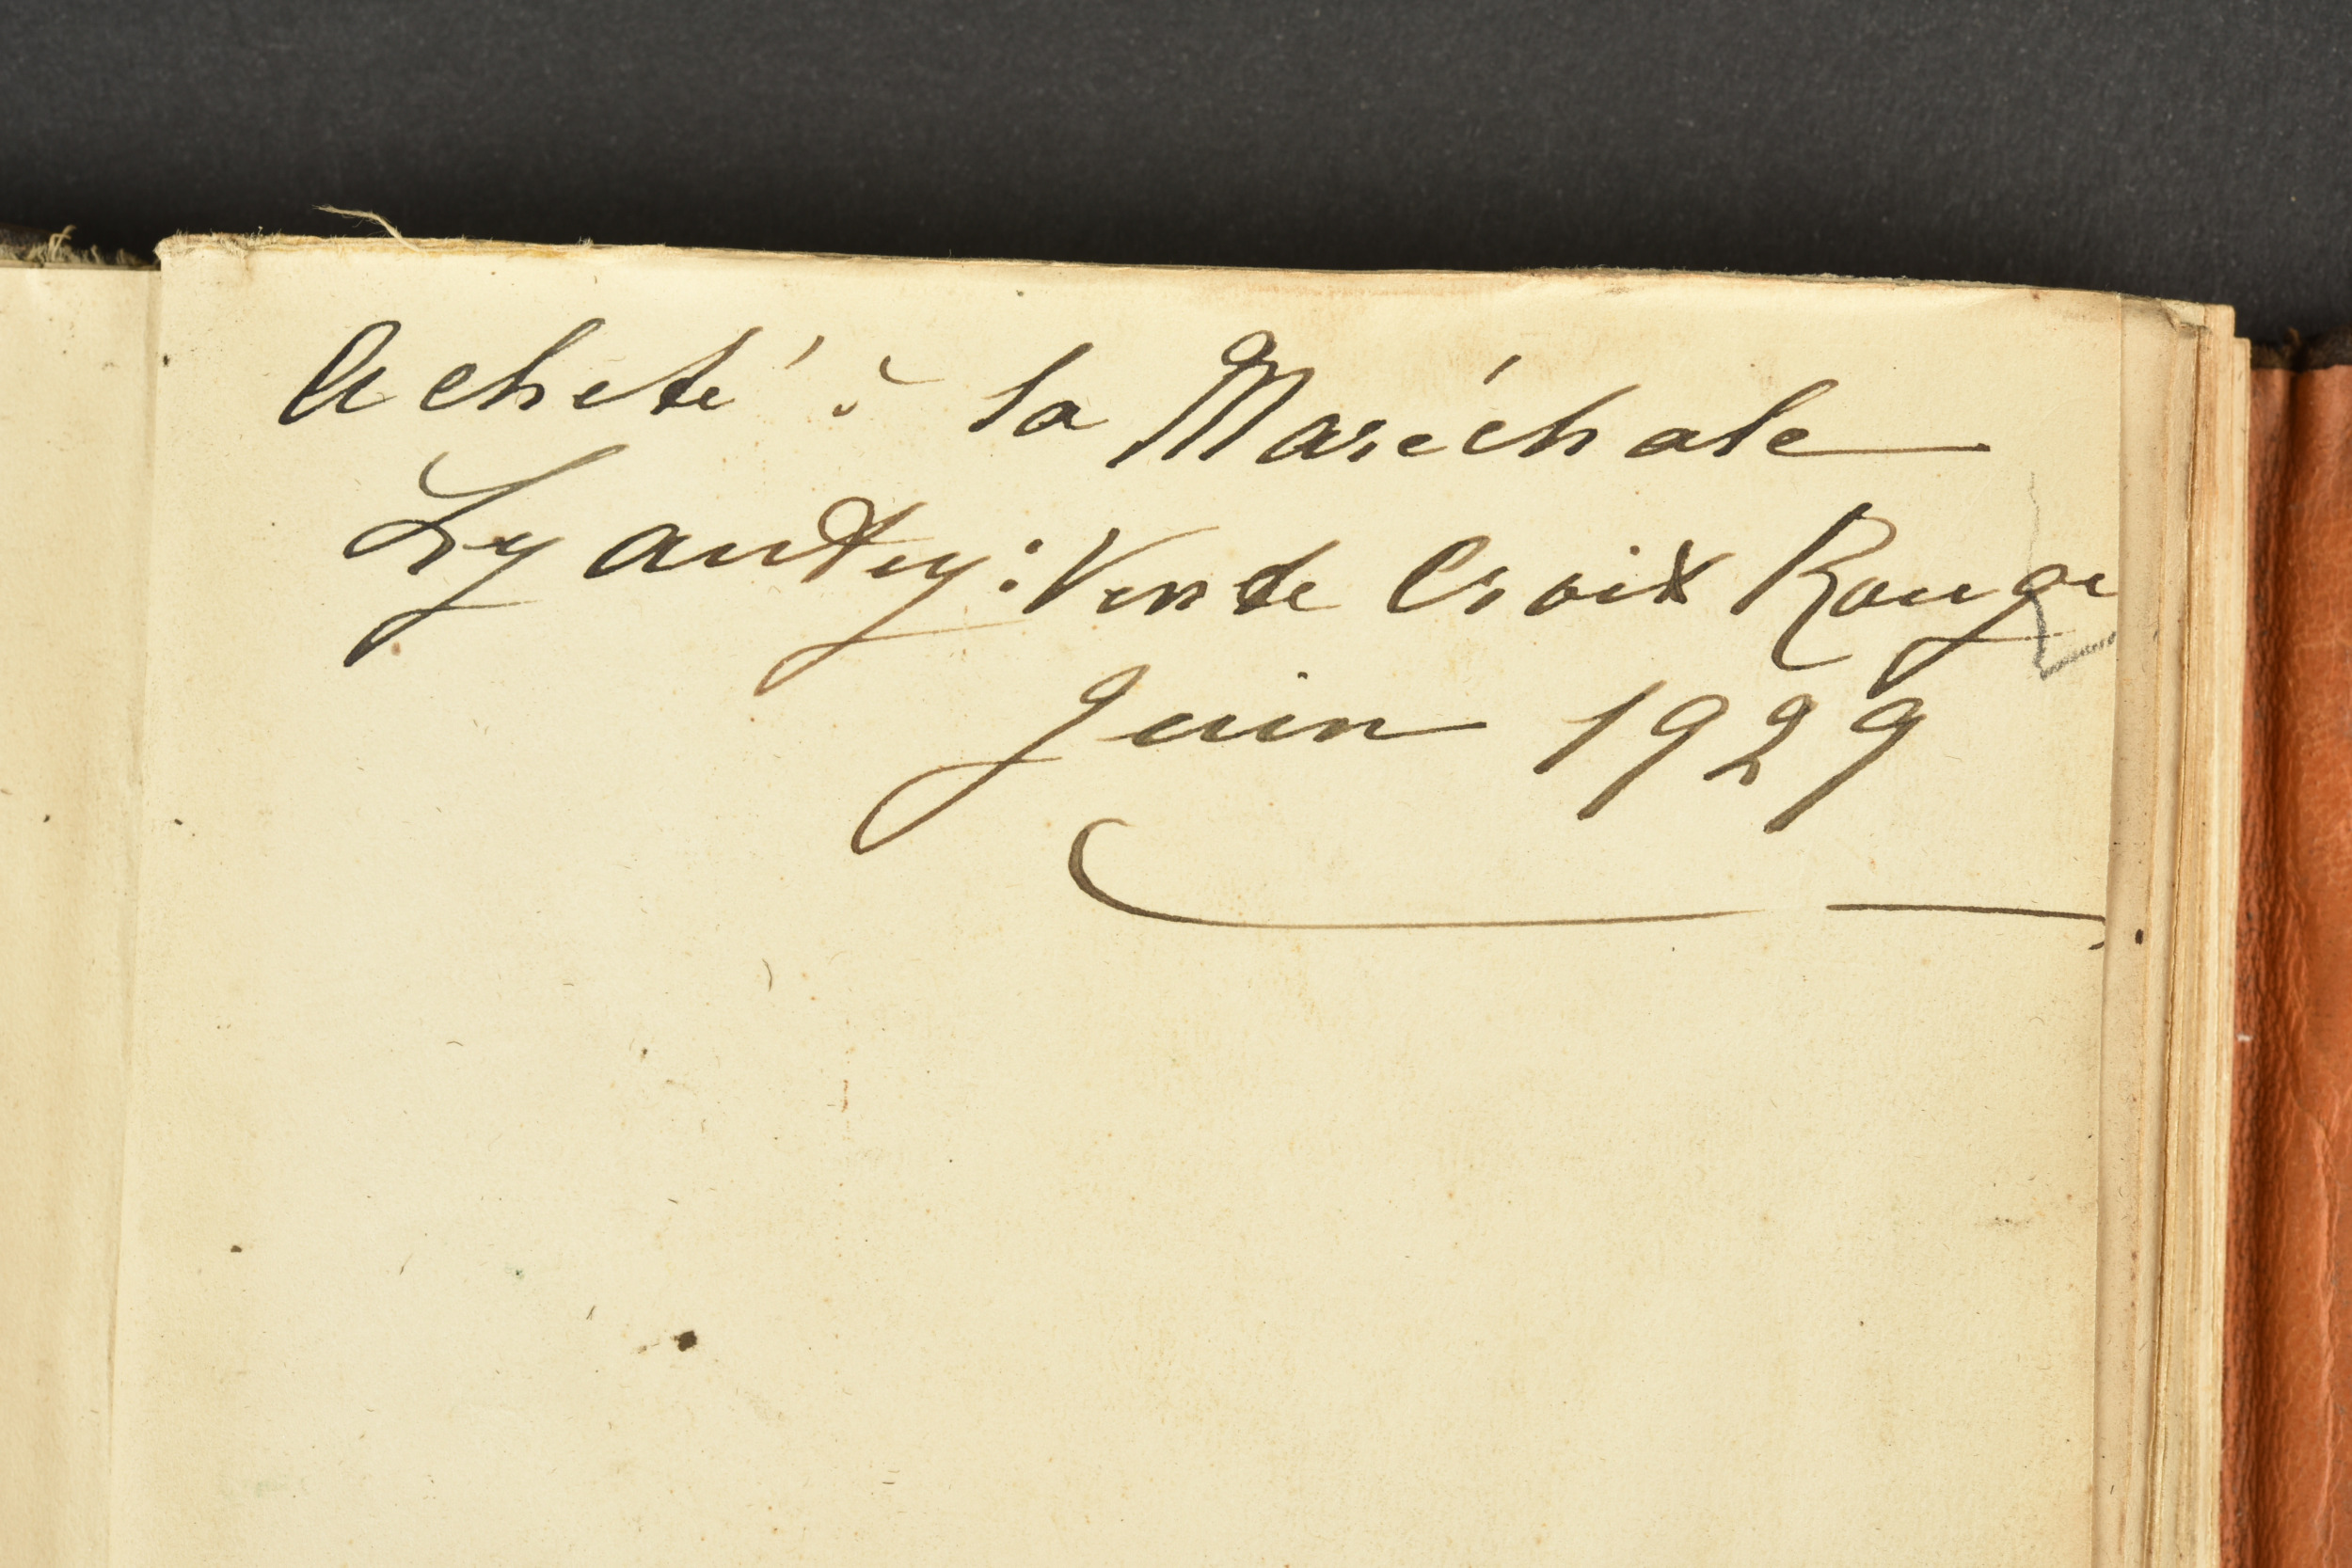 Acheté à la Maréchale
Lyautey : Vente Croix Rouge
Juin 1929